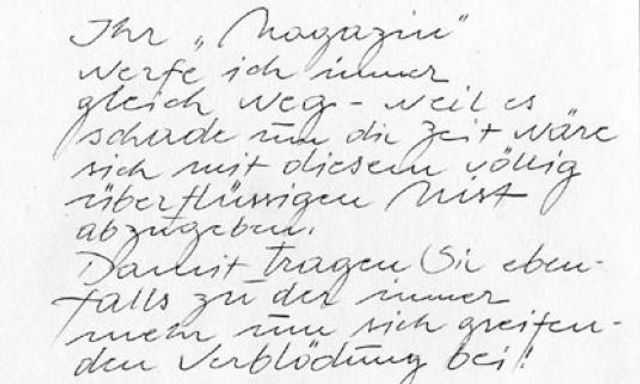 Ihr „Magazin"
werfe ich immer
gleich weg - weil es
schade um die Zeit wäre
sich mit diesem völlig
überflüssigen Mist
abzugeben.
Damit tragen Sie eben-
falls zu der immer
mehr um sich greifen-
den Verblödung bei!